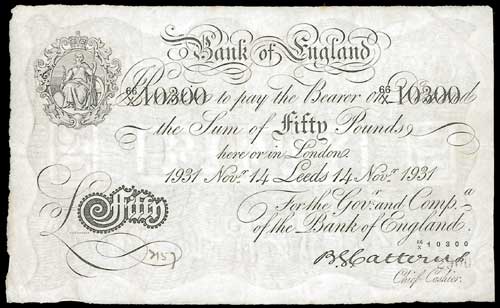 Bank of England
66/X 10300 66/X 10300
Promise to pay the Bearer on Demand
the Sum of Fifty Pounds
here or in London
1931 Nov.r 14 Leeds 14 Nov.r 1931
For the Gov.r and Comp.a
of the Bank of England.
£ Fifty
66/X 10300
B G Catterns
Chief Cashier.